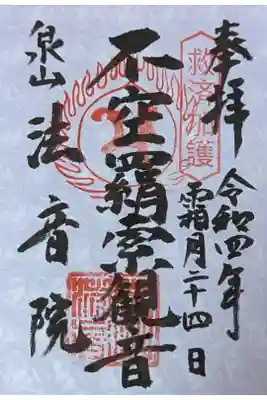 奉拝
救済加護
令和四年
霜月二十四日
不空羂索觀音
泉山
法音院